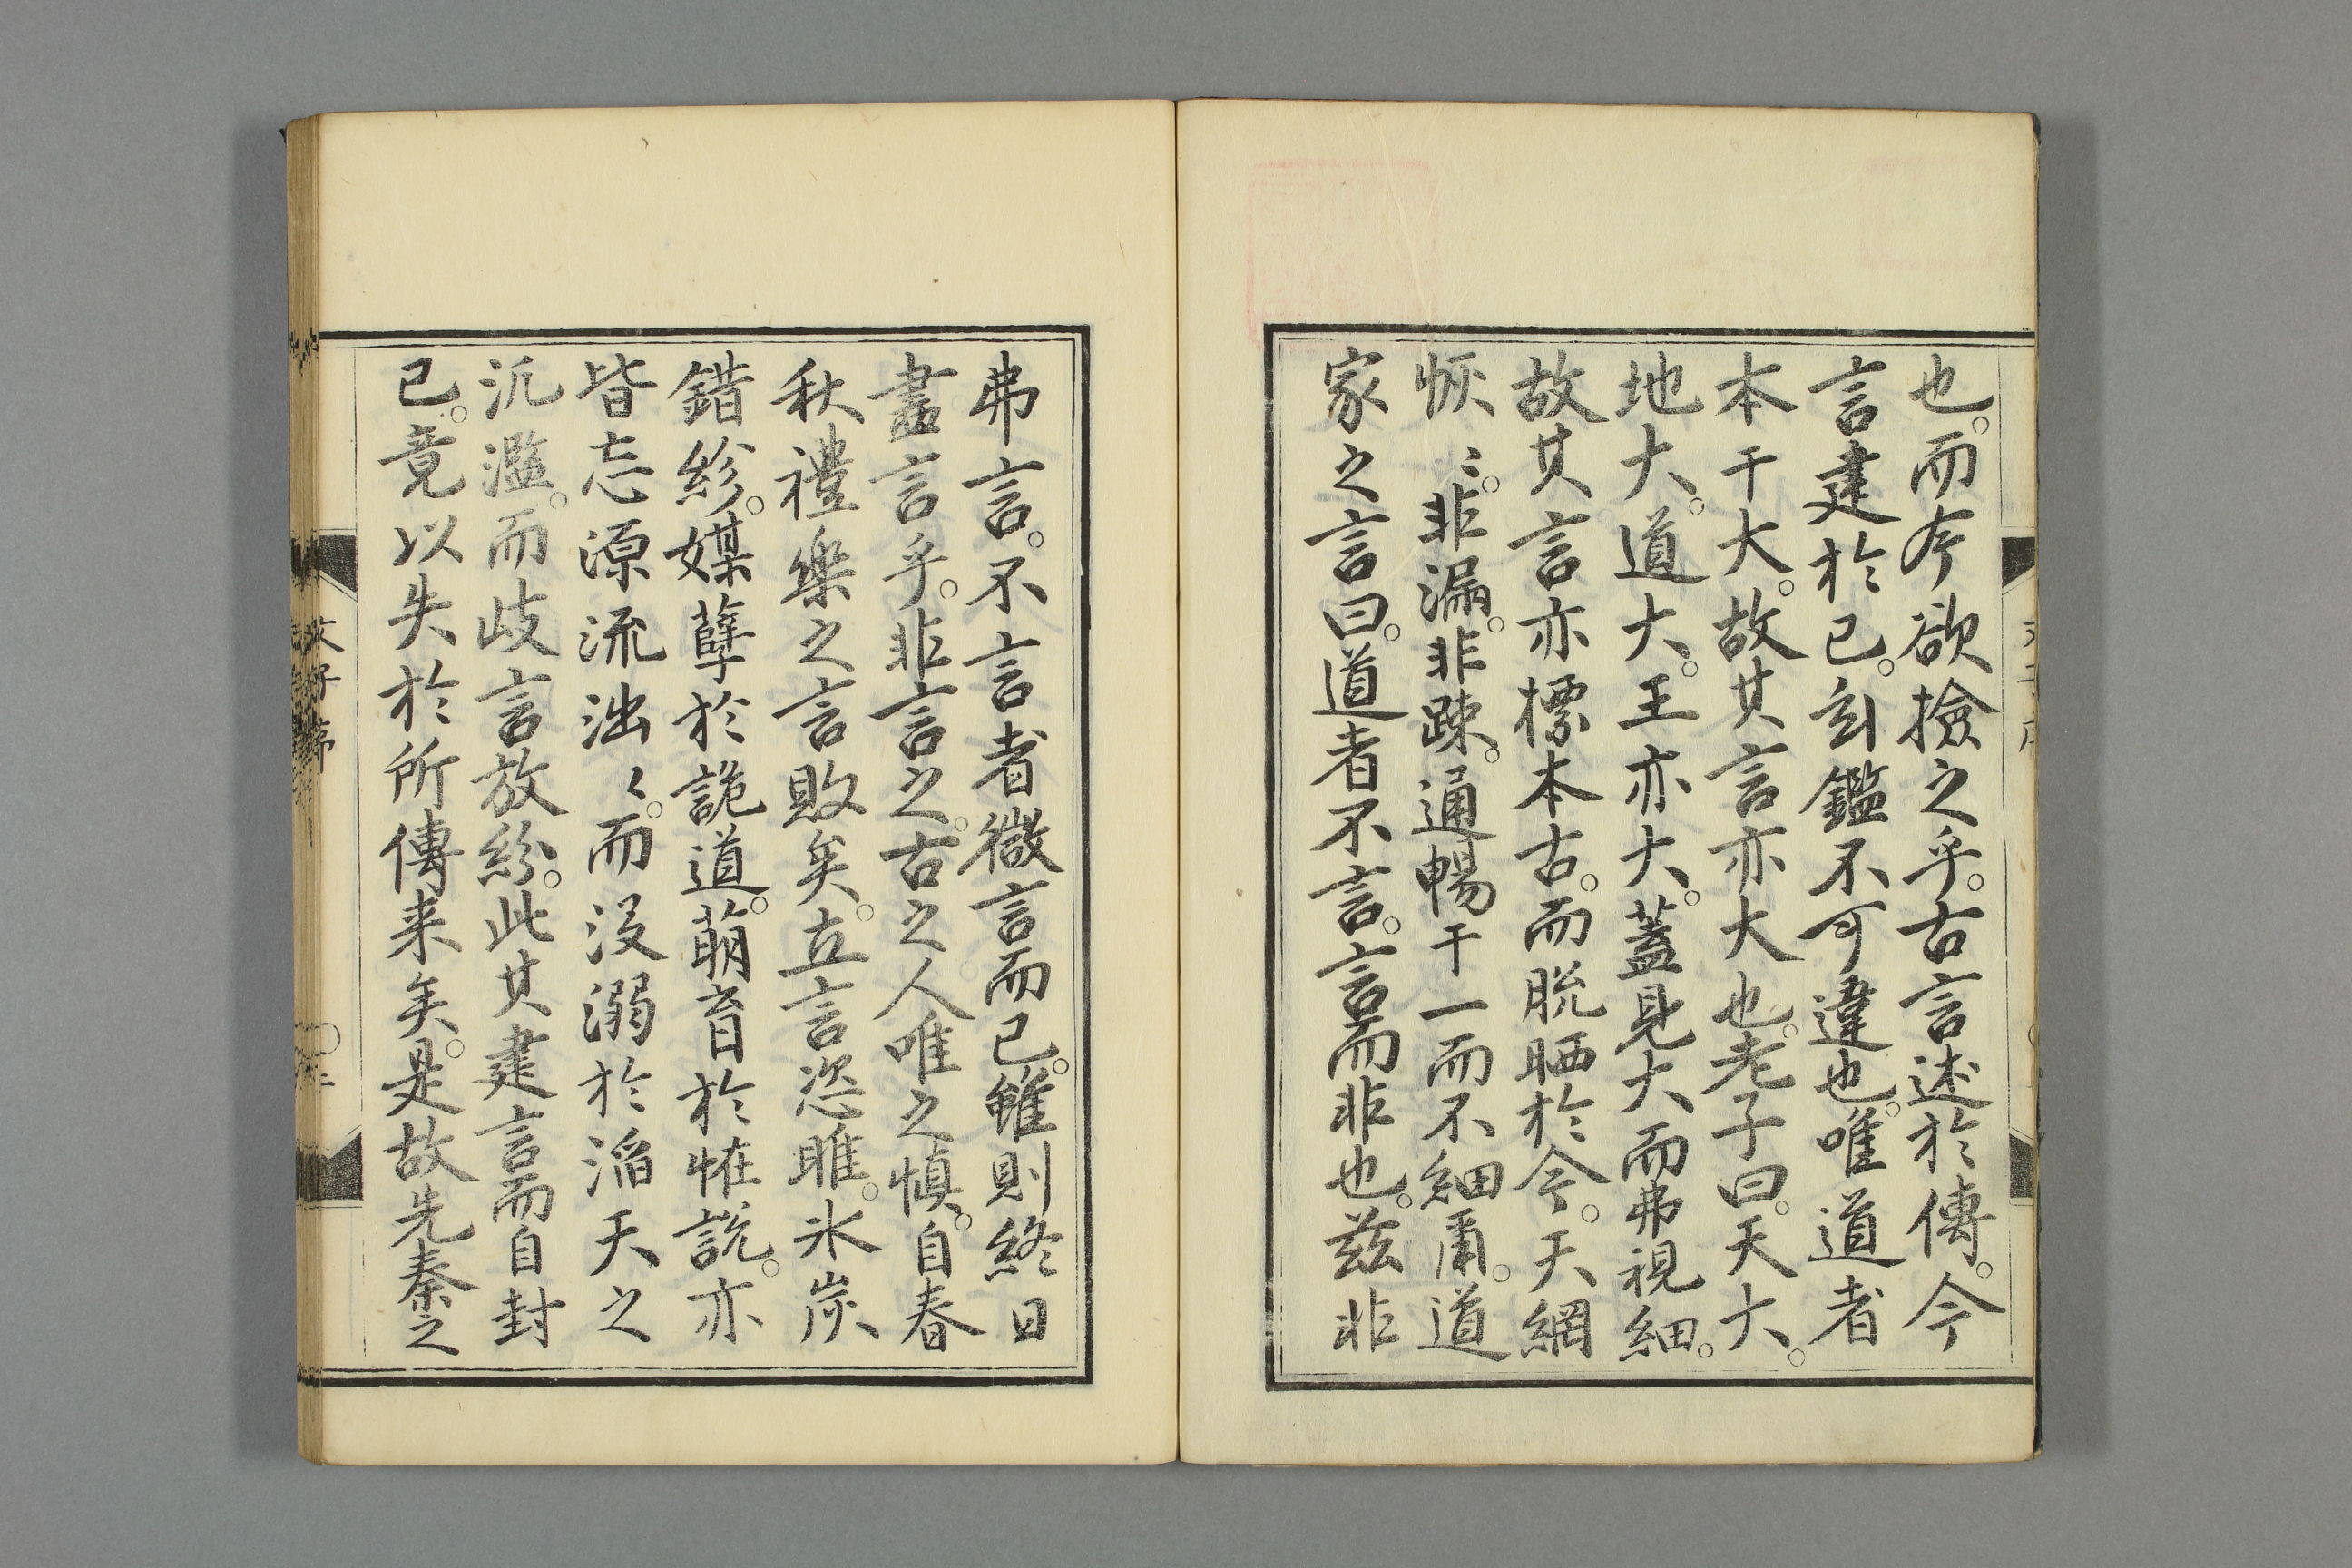 也。而夲欲撿之乎。古言述於傳。今
言建於已。玄鑑不可違也。唯道者
本于大。故其言亦大也。老子曰。天大。
地大。道大。王亦大。蓋見大而弗視細。
故其言亦標本古。而脱晒於今。天網
恢〻。非漏。非踈。通暢于一而不細爾。道
家之言曰。道者不言。言而非也。茲非
弗言。不言者微言而已。雖則終日
盡言乎。非言之。古之人唯之慎。自春
秋禮樂之言敗矣。立言恣睢。氷炭
錯紛。媒孽於詭道。萌育於恠説。亦
皆忘源流泏〻。而没溺於滔天之
沉濫。而歧言放紛。此其建言而自封
已。竟以失於所傳来矣。是故先秦之
文子序